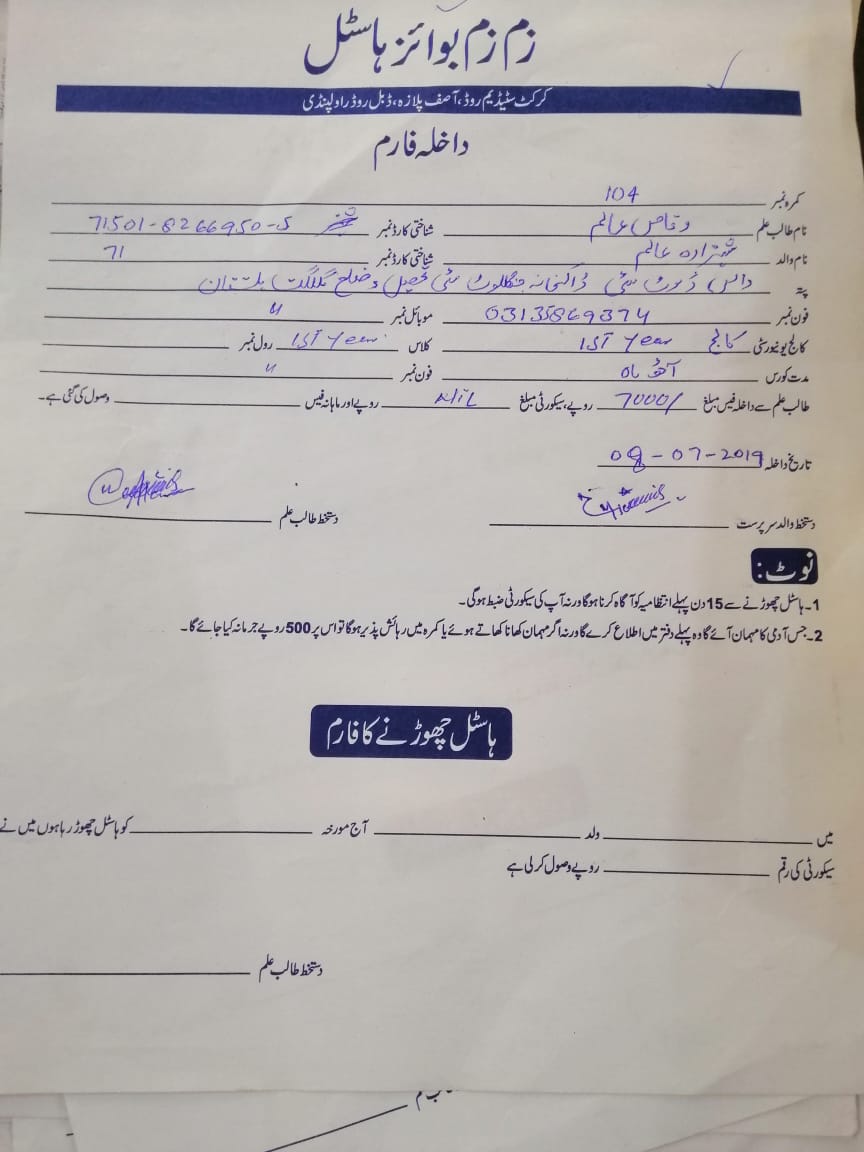 زم زم بوائز ہاسٹل
کرکٹ سٹیڈیم روڈ، آصف پلازہ، ڈبل روڈ راولپنڈی
داخلہ فارم
کمرہ نمبر 104
نام طالب علم وقاص عالم شناختی کارڈ نمبر 71501-8266950-5
نام والد شہزادہ عالم شناختی کارڈ نمبر 71
پتہ ڈاکخانہ جگلوٹ سئی تحصیل و ضلع گلگت بلتستان
فون نمبر 03135869374 موبائل نمبر "
کالج یونیورسٹی کالج 1st year کلاس 1st year رول نمبر
مدت کورس آٹھ ماہ فون نمبر "
طالب علم سے داخلہ فیس مبلغ 7000/ روپے، سیکورٹی مبلغ Nil روپے اور ماہانہ فیس وصول کی گئی ہے۔
تاریخ داخلہ 08-07-2019
دستخط والد سرپرست دستخط طالب علم
نوٹ:
1۔ ہاسٹل چھوڑنے سے 15 دن پہلے انتظامیہ کو آگاہ کرنا ہوگا ورنہ آپ کی سیکورٹی ضبط ہوگی۔
2۔ جس آدمی کا مہمان آئے گا وہ پہلے دفتر میں اطلاع کرے گا ورنہ اگر مہمان کھانا کھاتے ہوئے یا کمرہ میں رہائش پذیر ہوگا تو اس پر 500 روپے جرمانہ کیا جائے گا۔
ہاسٹل چھوڑنے کا فارم
میں ولد آج مورخہ کو ہاسٹل چھوڑ رہا ہوں میں نے
سیکورٹی کی رقم روپے وصول کر لی ہے
دستخط طالب علم